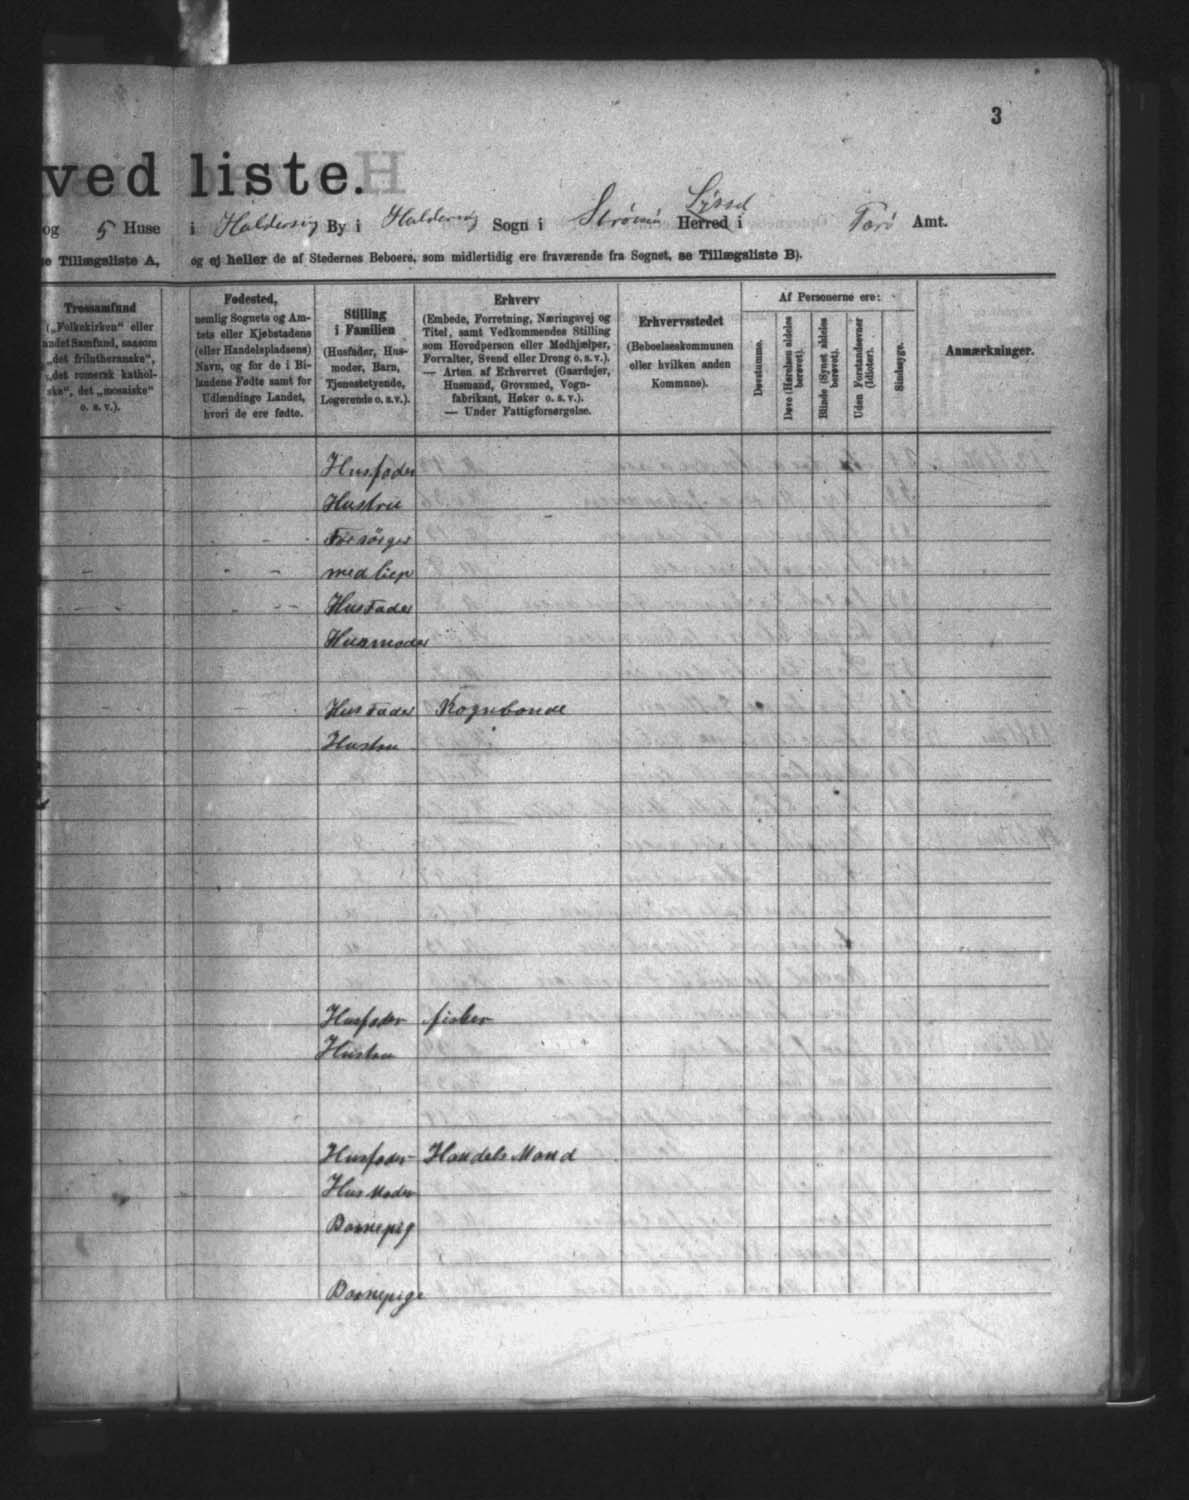 3
ved liste.
og 5 Huse i Haldersvig By i Haldersvig Sogn i Strömö Herred i Syssel Færö Amt.
e Tillægsliste A, og ej heller de af Stedernes Beboere, som midlertidig ere fraværende fra Sognet, se Tillægsliste B).
Trossamfund
(„Folkekirken“ eller
andet Samfund, saasom
„det frilutheranske“,
„det romersk kathol-
ske“, det „mosaiske“
o. s. v.).
Fødested,
nemlig Sognets og Am-
tets eller Kjøbstadens
(eller Handelspladsens)
Navn, og for de i Bi-
landene Fødte samt for
Udlændinge Landet,
hvori de ere fødte.
Stilling
i Familien
(Husfader, Hus-
moder, Barn,
Tjenestetyende,
Logerende o. s. v.).
Erhverv
(Embede, Forretning, Næringsvej og
Titel, samt Vedkommendes Stilling
som Hovedperson eller Medhjælper,
Forvalter, Svend eller Dreng o. s. v.).
— Arten af Erhvervet (Gaardejer,
Husmand, Grovsmed, Vogn-
fabrikant, Høker o. s. v.).
— Under Fattigforsørgelse.
Erhvervsstedet
(Beboelseskommunen
eller hvilken anden
Kommune).
Af Personerne ere:
Døvstumme.
Døve (Hørelsen aldeles
berøvet).
Blinde (Synet aldeles
berøvet).
Uden Forstandsevner
(Idioter).
Sindssyge.
Anmærkninger.
Husfader
Hustru
Forsörges
Husfader
Husmoder
Husfader Kognebonde
Hustru
Husfader fisker
Hustru
Husfader Handels Mand
Hus Moder
Barnepig
Barnepige